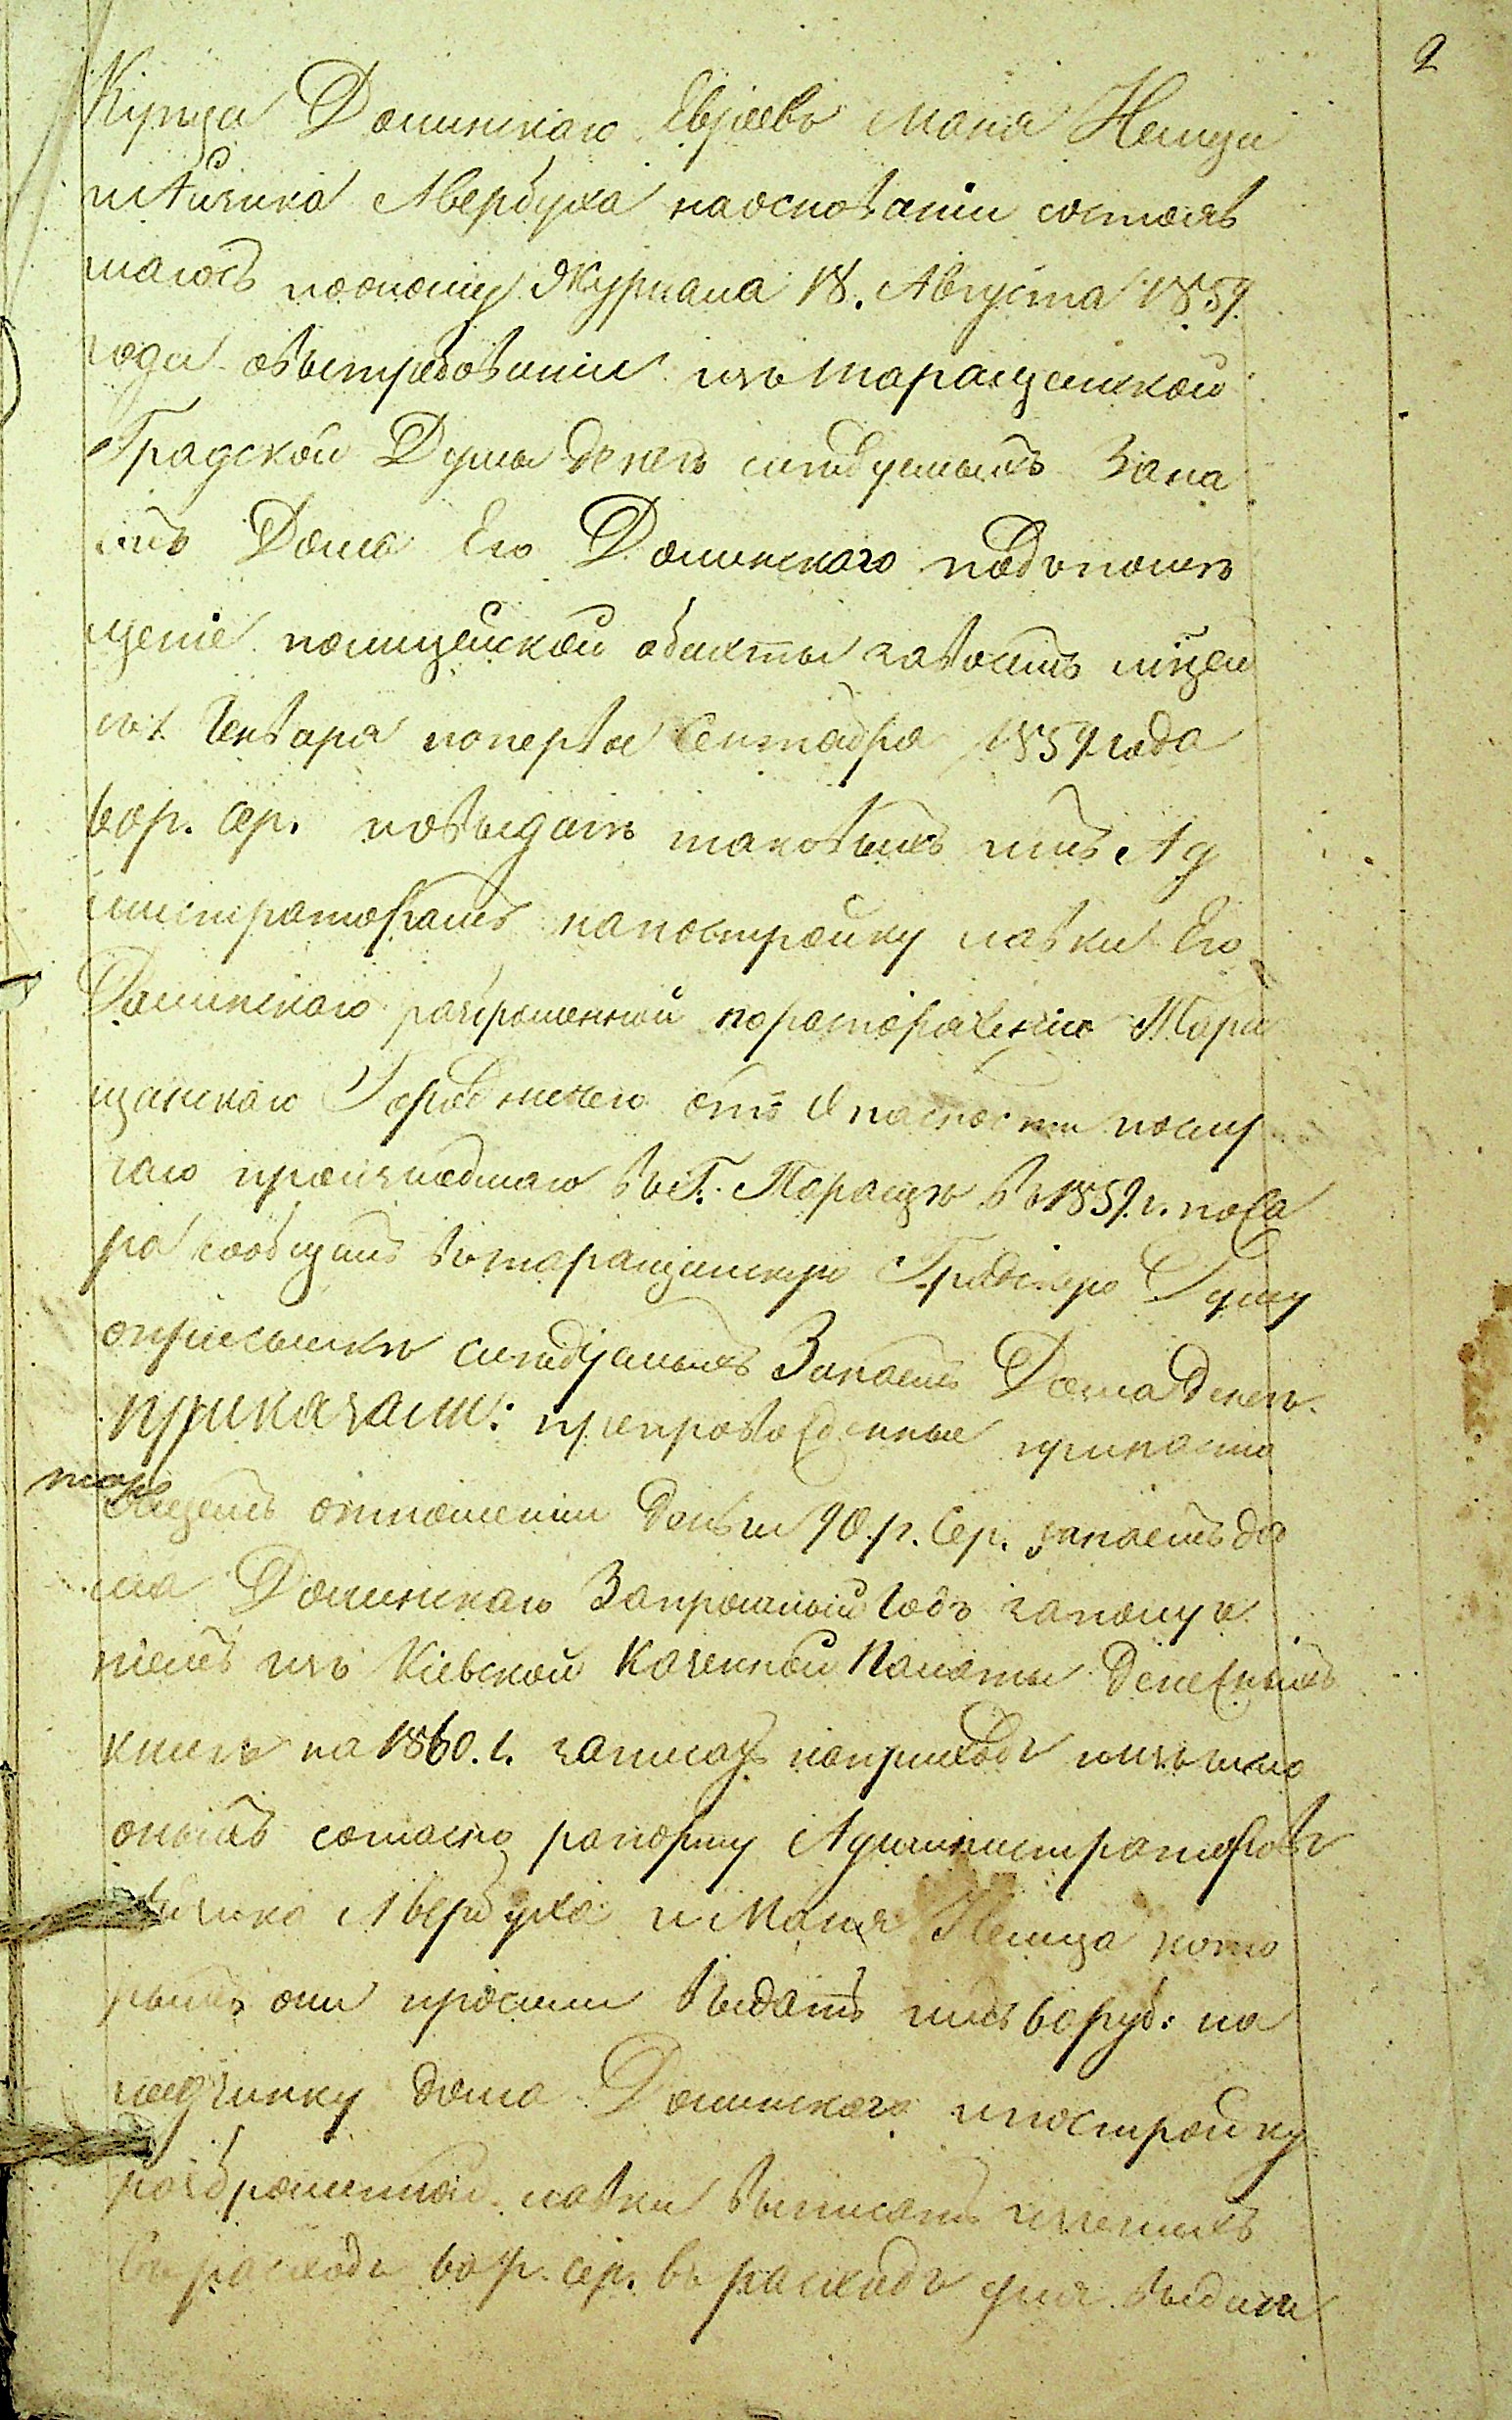 2
Купца Долинскаго Евреевъ Маня Немца
и Айзика Авербуха на основаніи состояв
шагось по оному Журнала 18. Августа 1859.
года овытребованіи изъ таращанской
Градской Думы денегъ слѣдуемыхъ За на
емъ Дома Его Долинскаго подъ помѣ
щеніе полицейской
съ 1. Генваря по первое Сентября 1859 года
60 р. сер. и о выдачѣ таковыхъ имъ Ад
министраторамъ на постройку лавки Его
Долинскаго разброшенной по распоряженію Тара
щанскаго Городничего отъ опасности по слу
чаю происшедшаго въ Г. Таращѣ въ 1859. г. пожа
ра сообщить въ таращанскую Градскую Думу
о присылкѣ слѣдуемыхъ За наемъ Дома денегъ.
приказали: препровожденные при насто
ящемъ отношеніи деньги 90. р. Сер. за наемъ до
ма Долинскаго За прошлый годъ за получе
ніемъ изъ Кіевской Казенной Палаты денежныхъ
книгъ на 1860. г. записать на приходъ и изъ числа
оныхъ согласно рапорту Администраторовъ
Айзика Авербуха и Маня Немца кото
рымъ они просили выдать имъ 60 руб: на
починку дома Долинскаго и постройку
разброшенной лавки выписать изъ нихъ
въ расходъ 60 р. сер. въ расходъ для выдачи